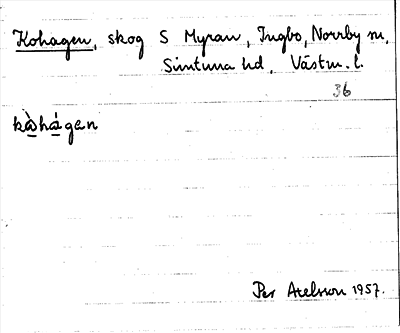 Kohagen, skog S Myran, Ingbo, Norrby sn,
Simtuna hd, Västm. l.
36
kὰ̲há̲gan
Per Axelsson 1957.